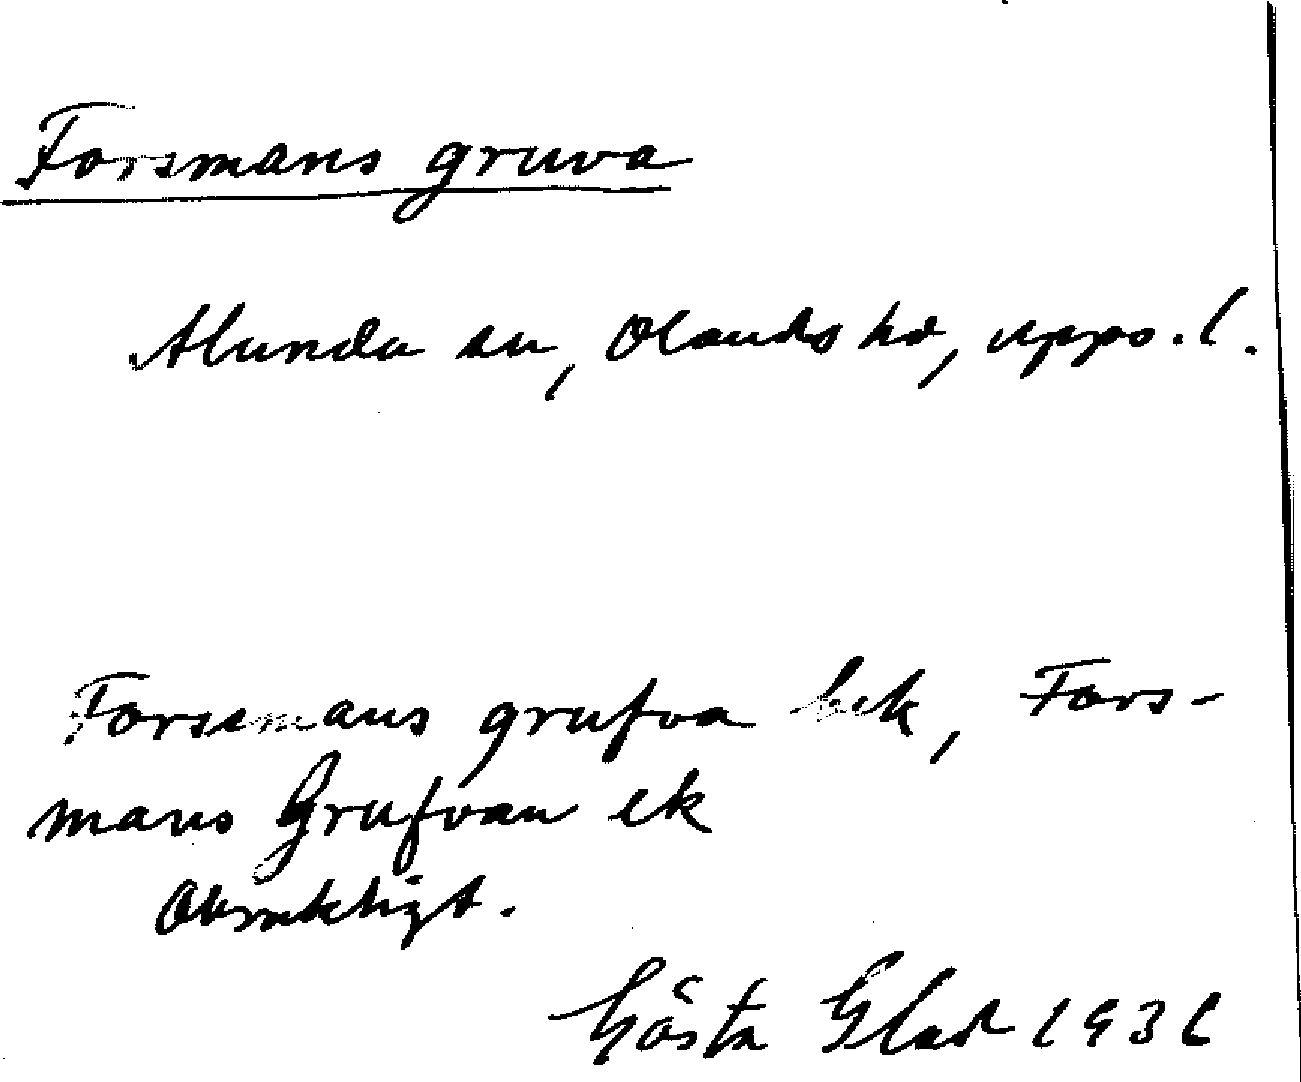 Forsmans gruva
Alunda sn, Olands hd, Upps. l.
Forssmans grufva bek, Fors-
mans Grufvan ek
Obrukligt.
Gösta Glad 1931